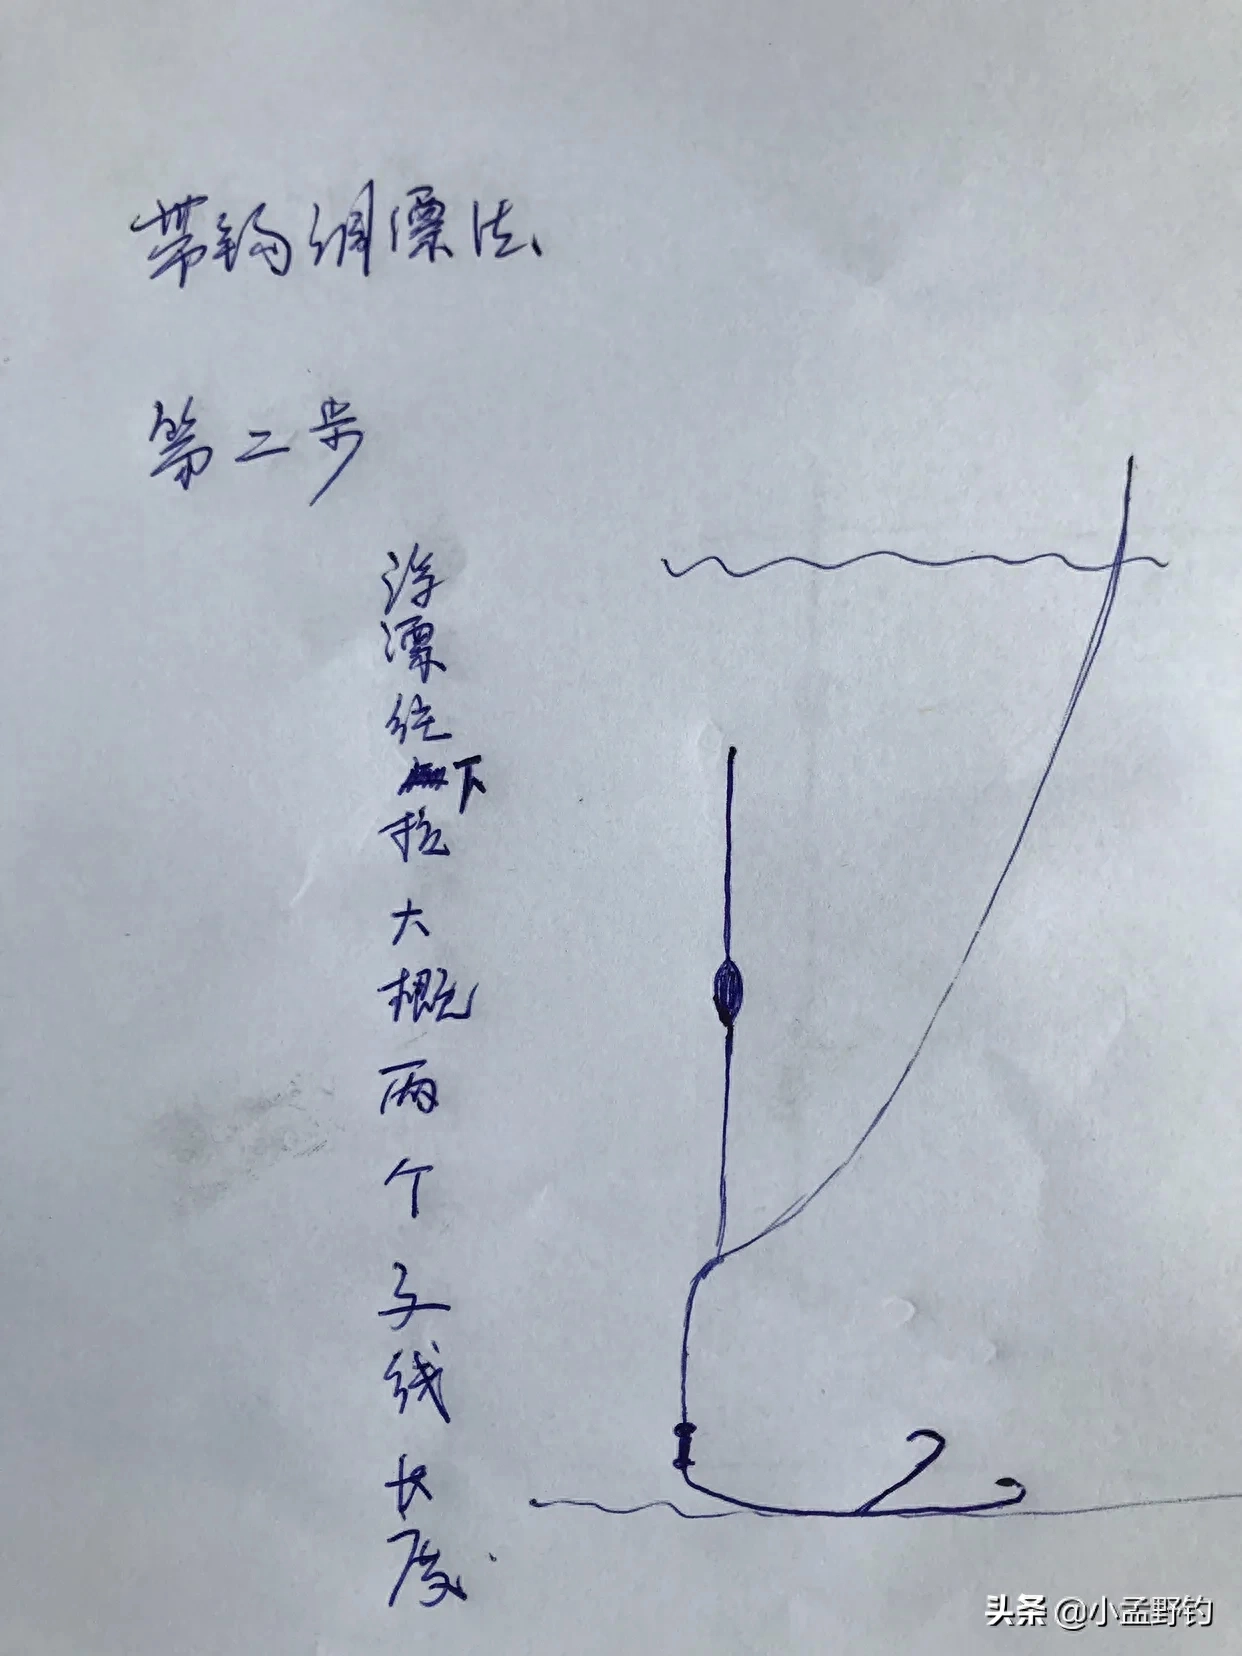 带钩调漂法
第二步
浮漂往下拉大概两个子线长度.
头条 @小孟野钓